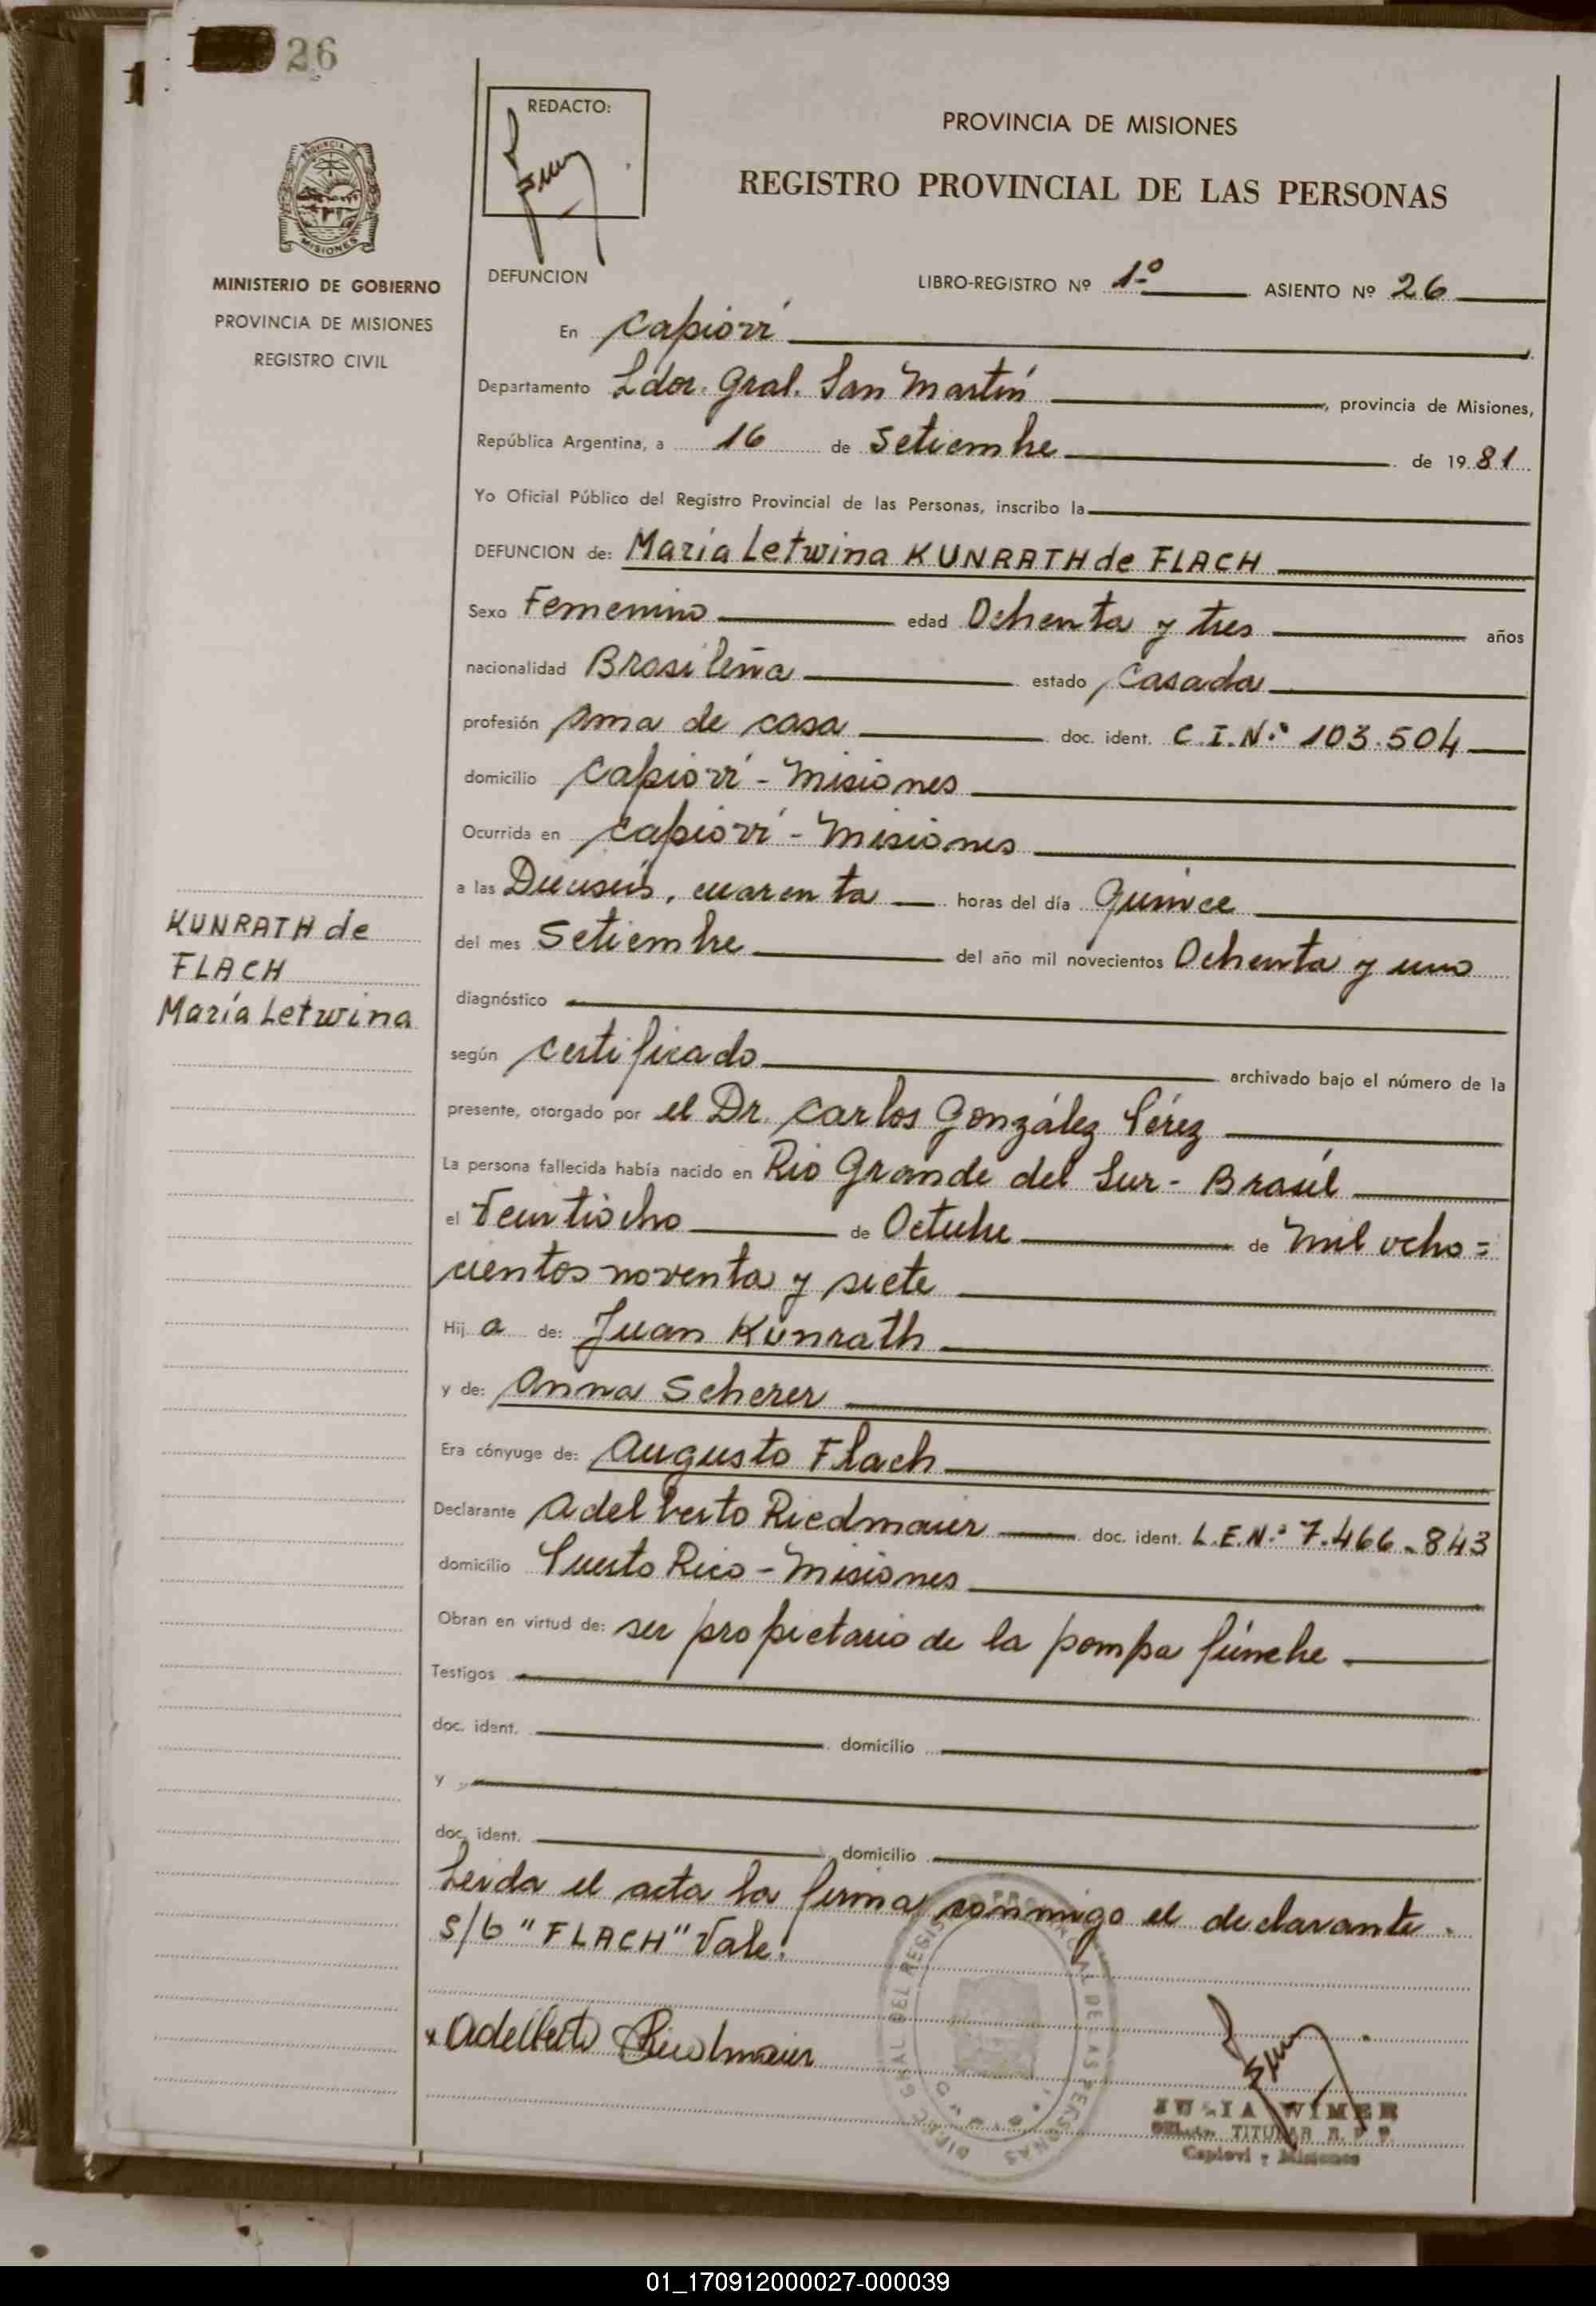 26
1
REDACTO:
PROVINCIA DE MISIONES
REGISTRO PROVINCIAL DE LAS PERSONAS
PROVINCIA DE
MISIONES
MINISTERIO DE GOBIERNO
PROVINCIA DE MISIONES
REGISTRO CIVIL
DEFUNCION
LIBRO-REGISTRO Nº 1º ASIENTO Nº 26
En Capioví
Departamento Ldor. Gral. San Martín, provincia de Misiones,
República Argentina, a 16 de Setiembre de 1981
Yo Oficial Público del Registro Provincial de las Personas, inscribo la
DEFUNCION de: María Letwina KUNRATH de FLACH
Sexo Femenino edad Ochenta y tres años
nacionalidad Brasileña estado Casada
profesión Ama de casa doc. ident. C.I.Nº 103.504
domicilio Capioví - Misiones
Ocurrida en Capioví - Misiones
a las Dieciseis, cuarenta horas del día Quince
del mes Setiembre del año mil novecientos Ochenta y uno
diagnóstico
según certificado archivado bajo el número de la
presente, otorgado por el Dr. Carlos González Pérez
La persona fallecida había nacido en Rio Grande del Sur - Brasil
el Veintiocho de Octubre de Mil ocho=
cientos noventa y siete
Hij a de: Juan Kunrath
y de: Anna Scherer
Era cónyuge de: Augusto Flach
Declarante Adelberto Riedmaier doc. ident. L.E.Nº 7.466.843
domicilio Puerto Rico - Misiones
Obran en virtud de: ser propietario de la pompa fúnebre
Testigos
doc. ident. domicilio
y
doc. ident. domicilio
Leida el acta la firma conmigo el declarante.
s/b "FLACH" Vale.
KUNRATH de
FLACH
María Letwina
x Adelberto Riedmaier
DIREC. GRAL DEL REGISTRO PROVINCIAL DE LAS PERSONAS
JULIA WIMER
TITULAR R. P. P.
Capioví - Misiones
01_170912000027-000039